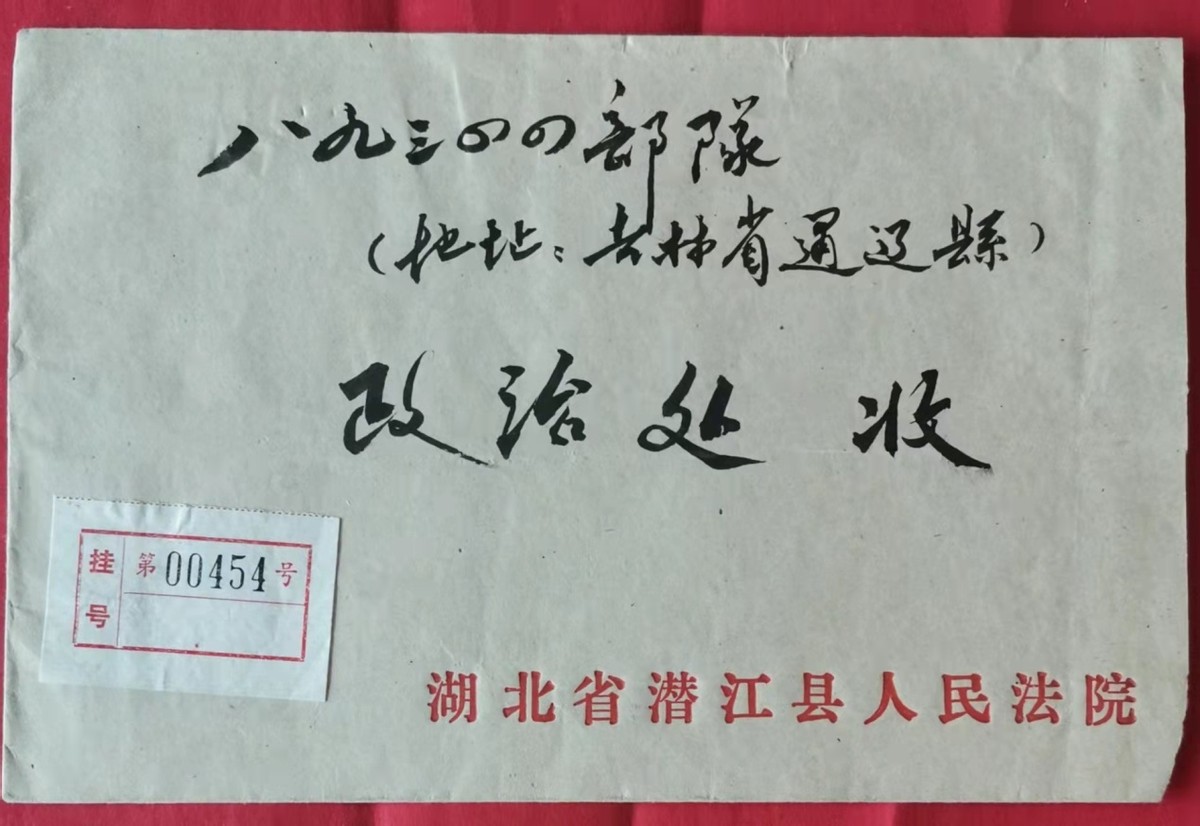 八九三四四部隊
(地址:吉林省通辽縣)
政治处 收
挂号
第00454号
湖北省潜江县人民法院